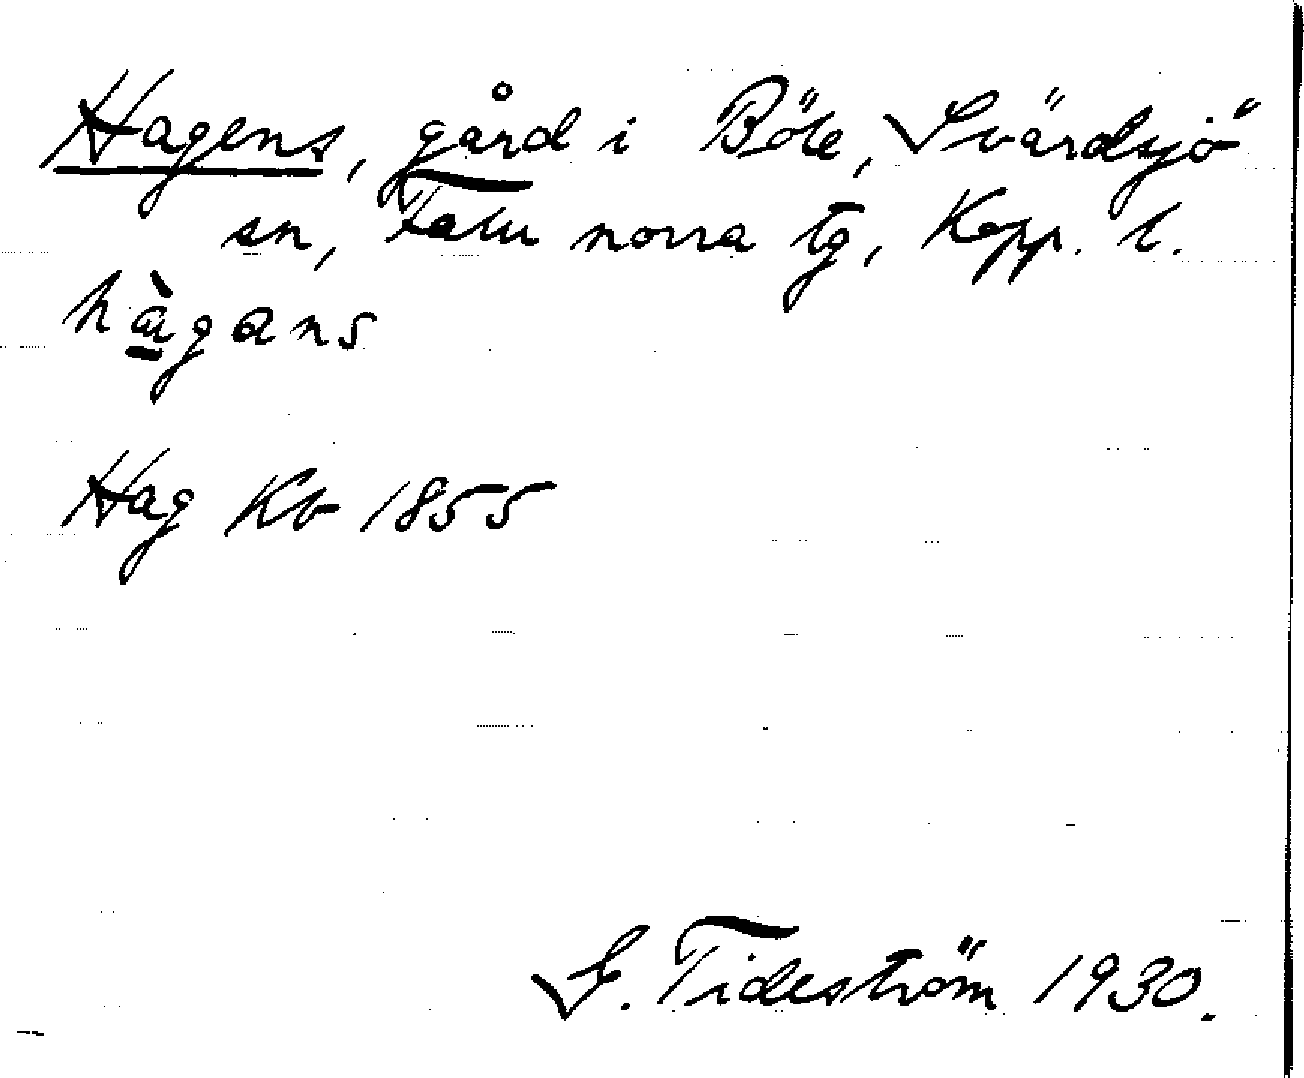 Hagens, gård i Böle, Svärdsjö
sn, Falu norra tg, Kopp. l.
hàgans
Hag Kb 1855
S. Tideström 1930.